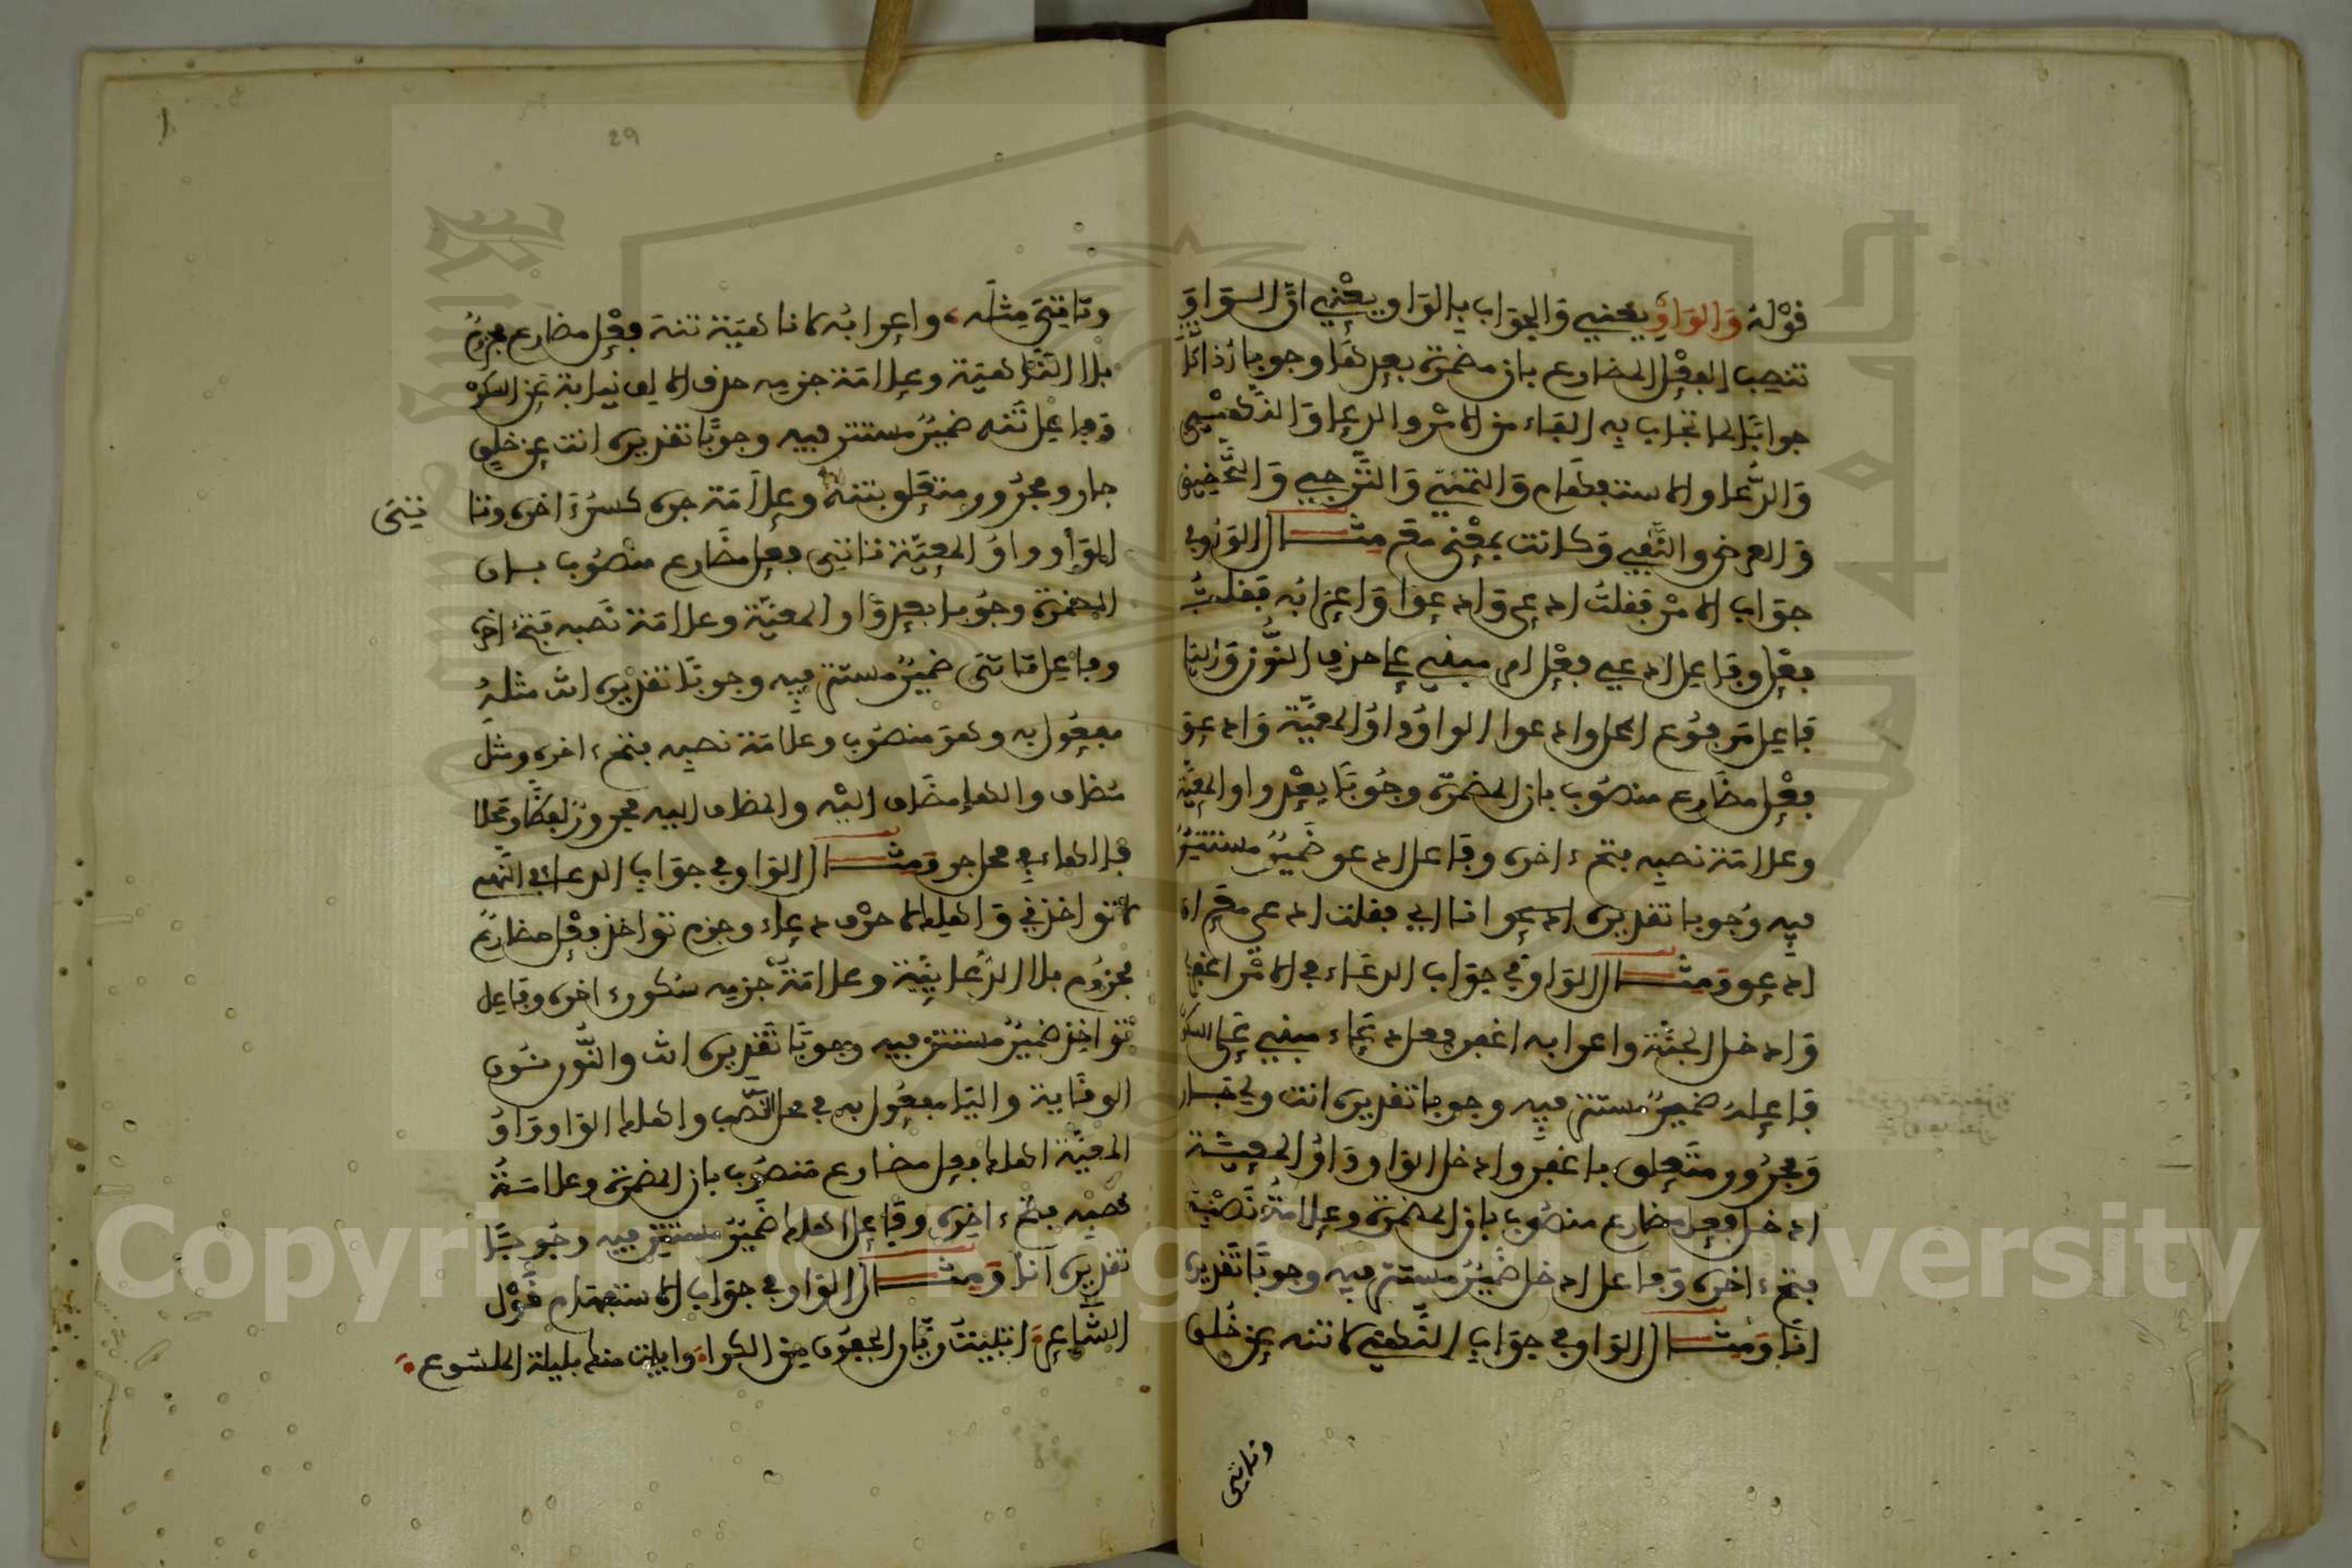 قوله والواو يعني والجواب بالواو يعني ان الواو
تنصب الفعل المضارع بان مضمرة بعدها وجوبا اذا كان
جوابا لما تجاب به الفاء من الامر والدعا والنهي
والدعا والاستفهام والتمني والترجي والتحضيض
والعرض والنفي وكانت بمعنى مع مثال الواو في
جواب الامر فقلت ادعي وادعوا واعرابه فقلت
فعل وفاعل ادعي فعل امر مبني على حذف النون والياء
فاعل مرفوع المحل وادعوا الواو واو المعية وادعو
فعل مضارع منصوب بان المضمرة وجوبا بعد واو المعية
وعلامة نصبه فتحة اخره وفاعل ادعو ضمير مستتر
فيه وجوبا تقديره ادعو انا اي فقلت ادعي مع ان
ادعو ومثال الواو في جواب الدعاء في الامر اغفر لي
وادخل الجنة واعرابه اغفر فعل دعاء مبني على السكون
فاعله ضمير مستتر فيه وجوبا تقديره انت ولي جار
ومجرور متعلق باغفر وادخل الواو واو المعية
ادخل فعل مضارع منصوب بان المضمرة وعلامة نصبه
فتحة اخره وفاعل ادخل ضمير مستتر فيه وجوبا تقديره
انا ومثال الواو في جواب النهي لا تنه عن خلق
وتاتي
29
وتاتي مثله واعرابه لا ناهية تنه فعل مضارع مجزوم
بلا الناهية وعلامة جزمه حذف الالف نيابة عن السكون
وفاعل تنه ضمير مستتر فيه وجوبا تقديره انت عن خلق
جار ومجرور متعلق بتنه وعلامة جره كسرة اخره وتا تي
الواو واو المعية تاتي فعل مضارع منصوب بان
المضمرة وجوبا بعد واو المعية وعلامة نصبه فتحة اخره
وفاعل تاتي ضمير مستتر فيه وجوبا تقديره انت مثله
مفعول به وهو منصوب وعلامة نصبه فتحة اخره ومثل
مضاف والهاء مضاف اليه والمضاف اليه مجرور لفظا ومحلا
فالهاء في محل جر ومثال الواو في جواب الدعاء في النهي
لا تواخذني واهلك لا حرف دعاء وجزم تواخذ فعل مضارع
مجزوم بلا الدعايية وعلامة جزمه سكون اخره وفاعل
تواخذ ضمير مستتر فيه وجوبا تقديره انت والنون نون
الوقاية واليا مفعول به في محل النصب واهلك الواو واو
المعية اهلك فعل مضارع منصوب بان المضمرة وعلامة
نصبه فتحة اخره وفاعل اهلك ضمير مستتر فيه وجوبا
تقديره انا ومثال الواو في جواب الاستفهام قول
الشاعر اتبيت ريان الجفون من الكرا وابيت منك بليلة الملسوع
Copyright © King Saud University